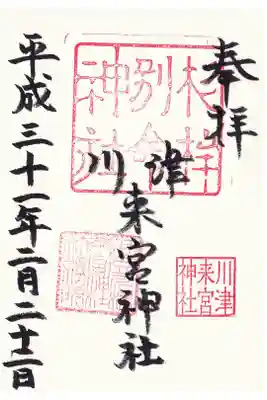 奉拝
杉桙
別命
神社
川津来宮神社
川津
来宮
神社
平成三十一年二月二十二日